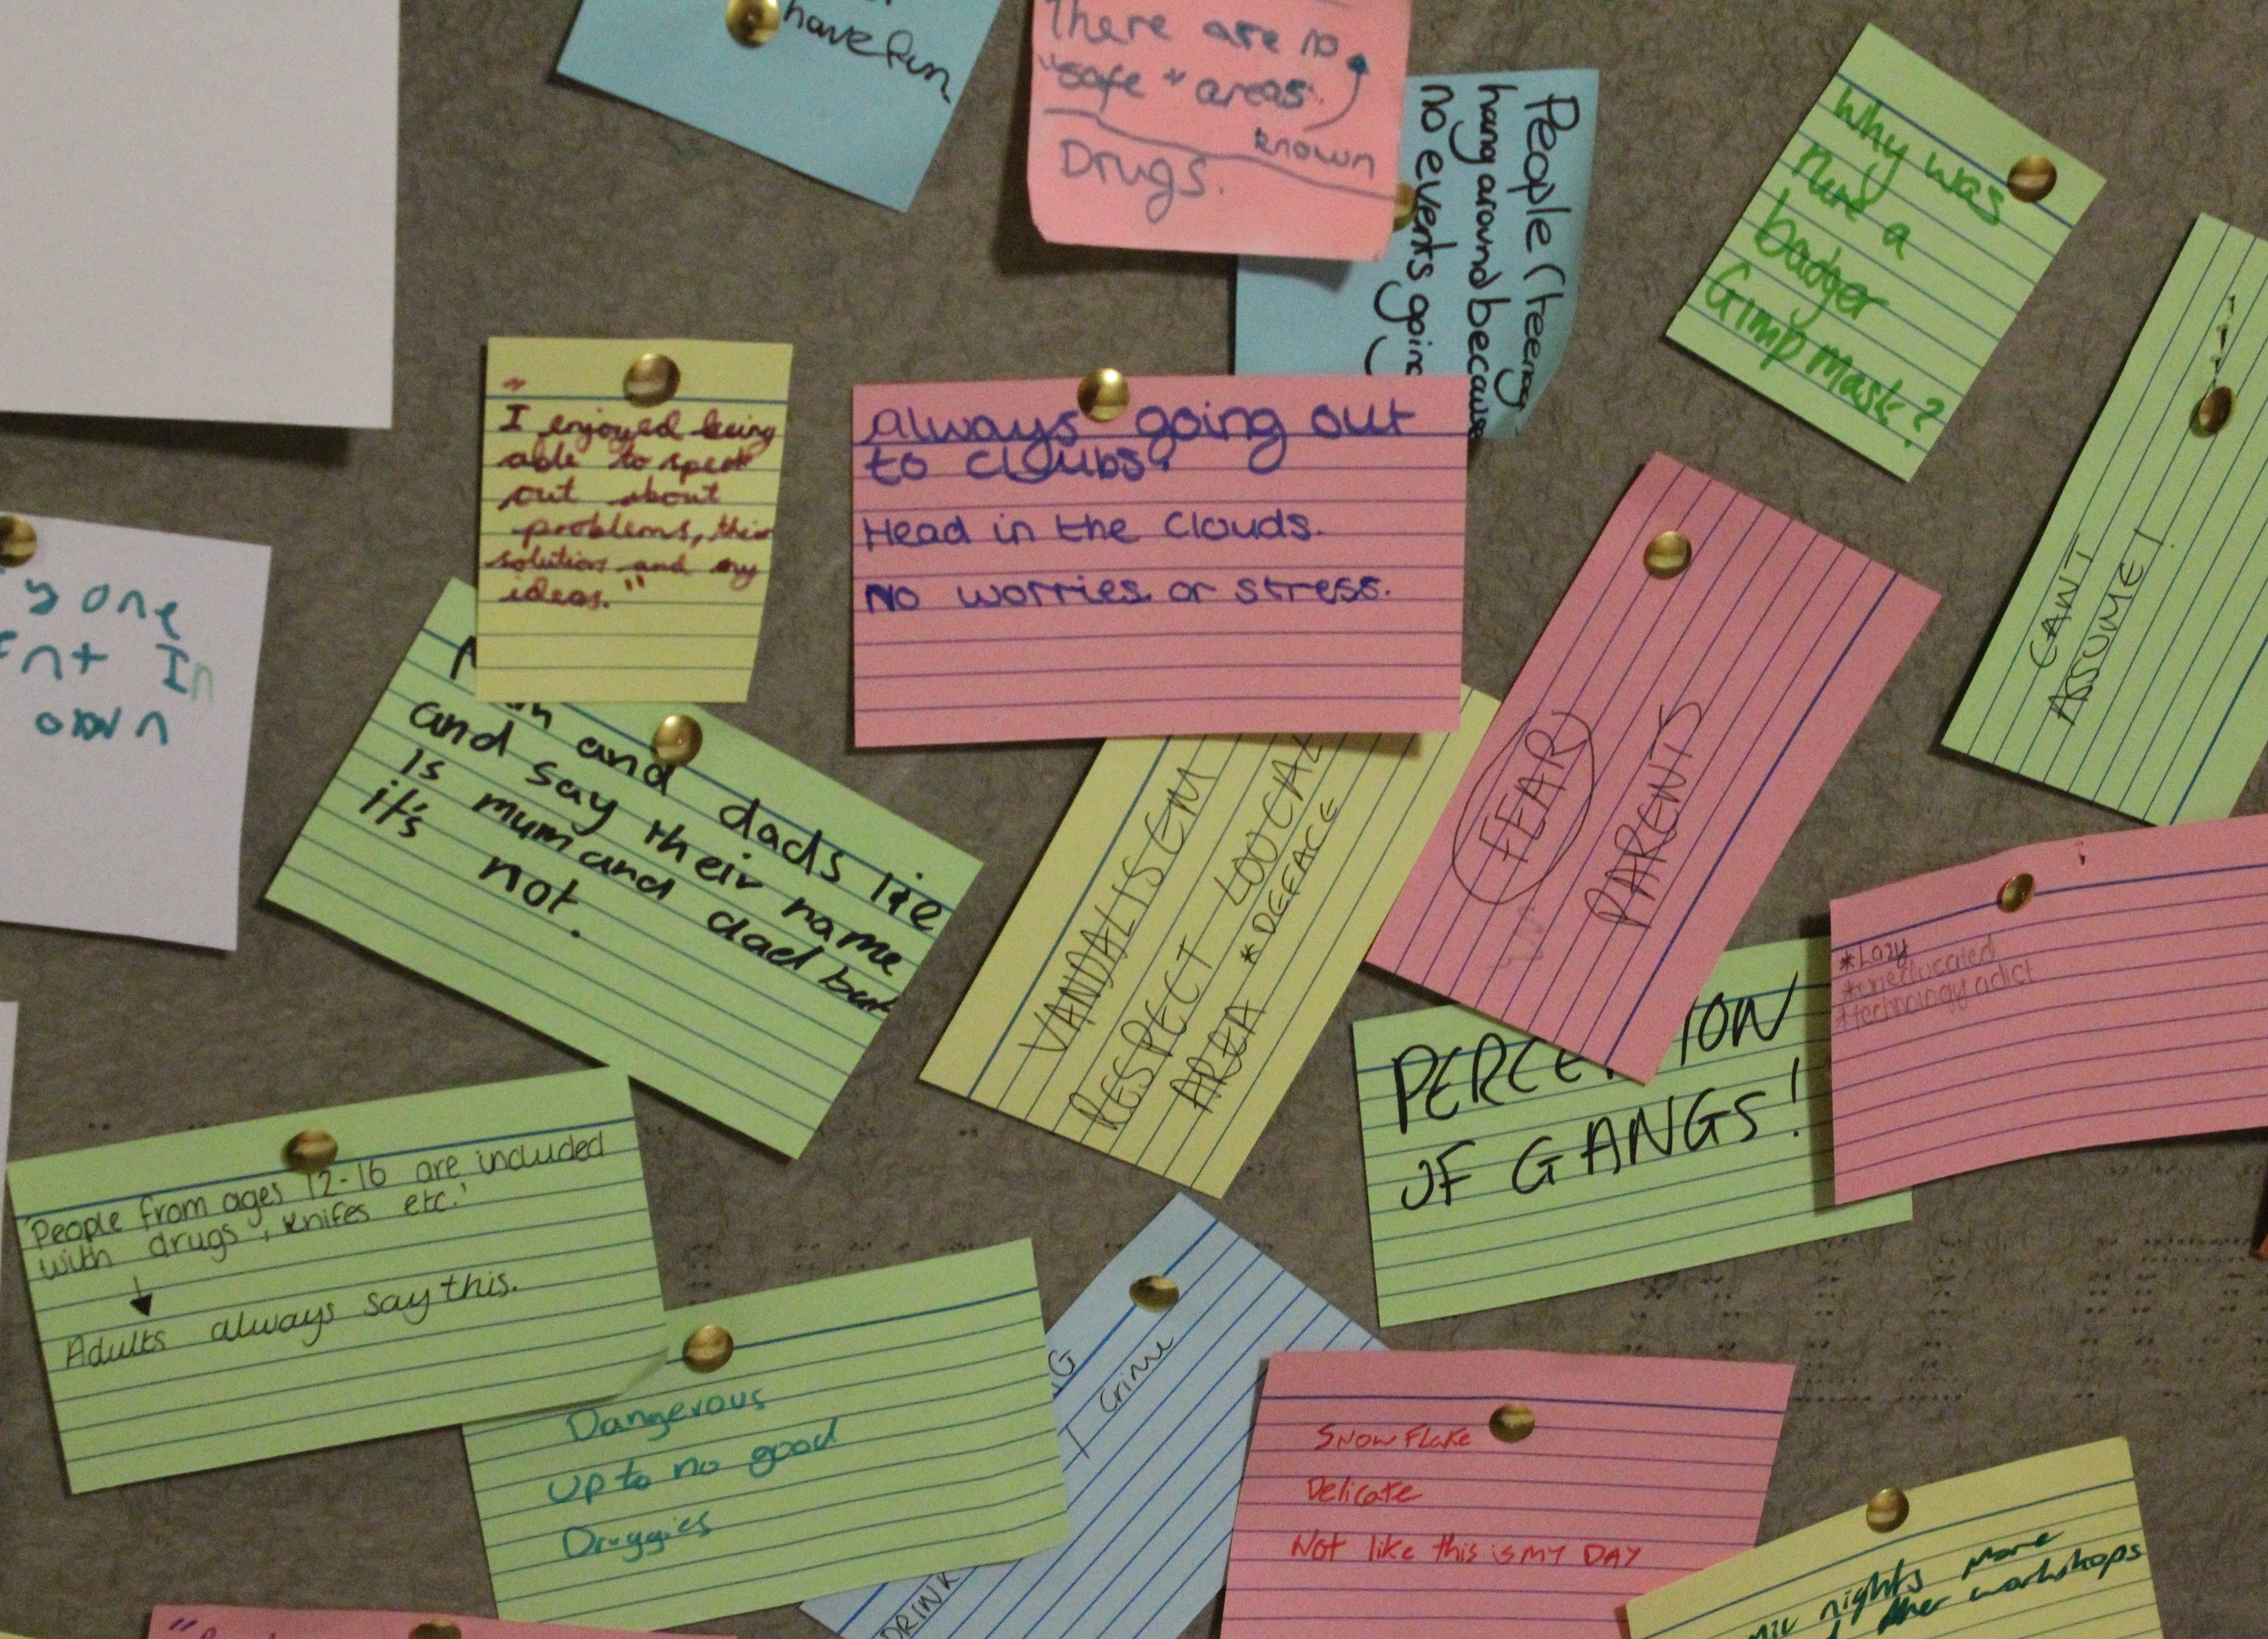 have fun
There are no
"safe" areas.
known
Drugs.
People (teenag
hang around because
no events going
Why was
there a
badger
Gimp mask?
"I enjoyed being
able to speak
out about
problems, their
solutions and my
ideas."
Always going out
to cloubs.
Head in the clouds.
No worries or stress.
CANT
ASSUME!
y one
In
own
and dads lie
and say their name
is mum and dad but
it's not.
VANDALISEM
RESPECT LOOCAL
AREA *DEFACE
FEAR
PARENTS
*Lazy
*uneducated
*technology adict
PERCE ION
OF GANGS!
'People from ages 12-16 are included
with drugs, knifes etc.'
Adults always say this.
Dangerous
up to no good
Druggies
G
Crime
DRINK
Snowflake
Delicate
Not like this is MY DAY
nights more
other workshops